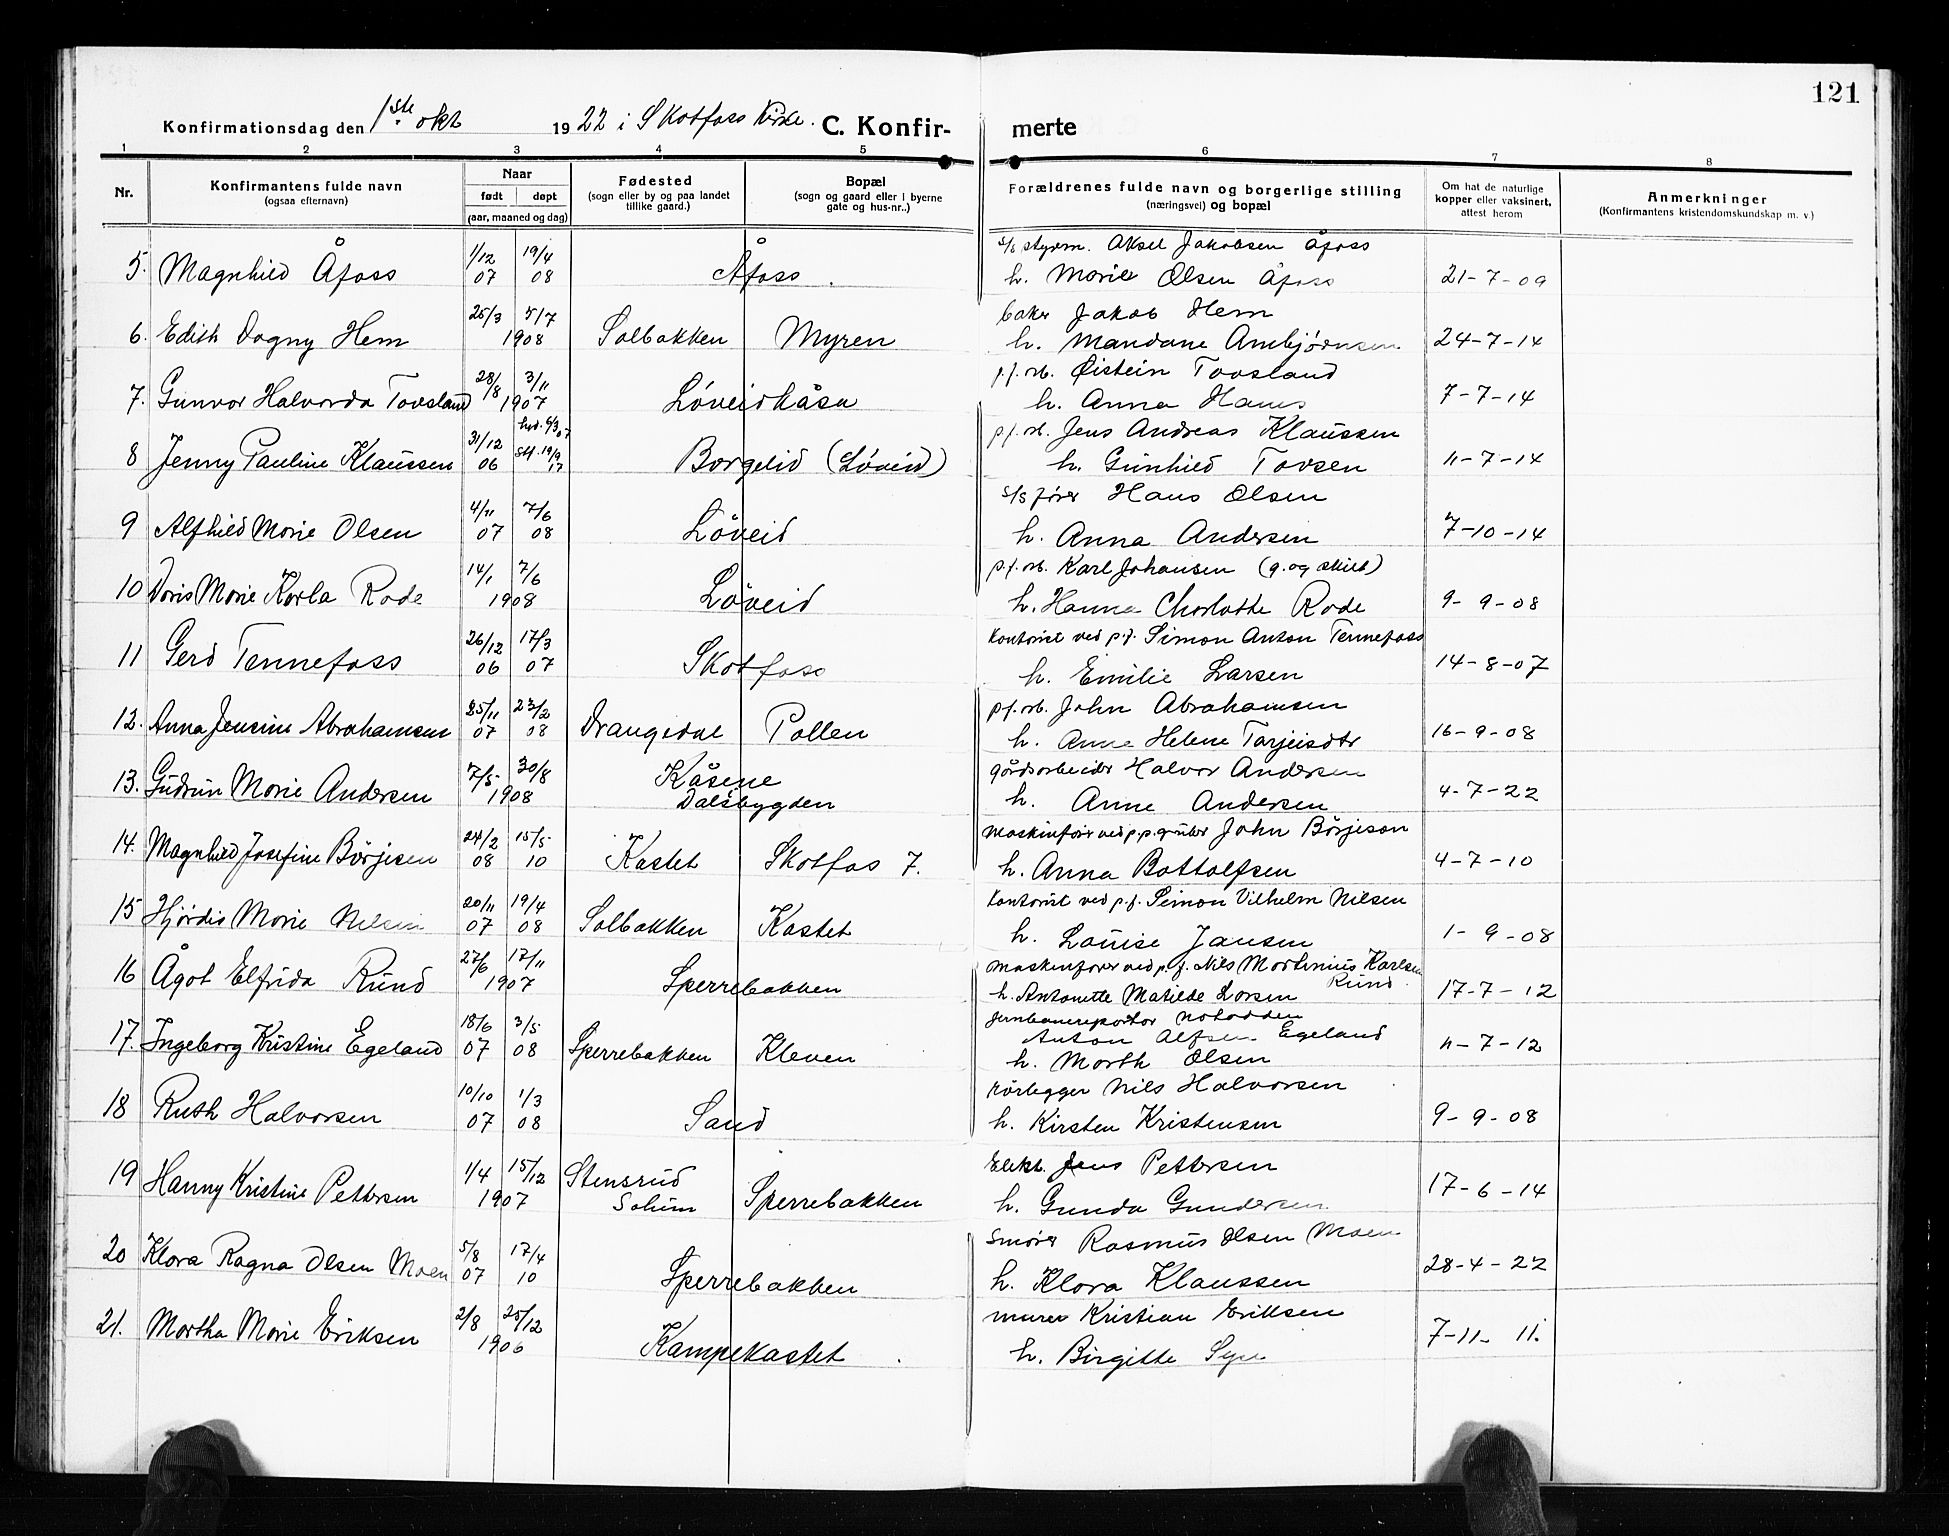 121
Konfirmationsdag den 1ste okt 1922 i Skotfoss kirke. C. Konfir- merte
1 2 3 4 5 6 7 8
Nr. Konfirmantens fulde navn (ogsaa efternavn) Naar født døpt (aar, maaned og dag) Fødested (sogn eller by og paa landet tillike gaard.) Bopæl (sogn og gaard eller i byerne gate og hus-nr..) Forældrenes fulde navn og borgerlige stilling (næringsvei) og bopæl Om hat de naturlige kopper eller vaksinert, attest herom Anmerkninger (Konfirmantens kristendomskundskap m. v.)
5. Magnhild Åfoss 1/12 07 19/4 08 Åfoss. s/s styrm. Aksel Jakobsen Åfoss
h. Marie Olsen Åfoss 21-7-09
6. Edith Dagny Hem 25/3 5/7 1908 Solbakken Myren baker Jakob Hem
h. Mandane Ambjørnsen 24-7-14
7. Gunvor Halvorda Tovsland 28/8 3/11 1907 Løveidkåsa p.f. arb. Øistein Tovsland
h. Anna Hans 7-7-14
8 Jenny Pauline Klaussen 31/12 06 19/9 17 Borgelid (Løveid) p.f. arb. Jens Andreas Klaussen
h. Gunhild Tovsen 11-7-14
9 Alfhild Marie Olsen 4/11 07 7/6 08 Løveid s/s fører Hans Olsen
h. Anna Andersen 7-10-14
10 Doris Marie Karla Rode 14/1 7/6 1908 Løveid p.f. arb. Karl Johansen (g. og skilt)
h. Hanna Charlotte Rode 9-9-08
11 Gerd Tennefoss 26/12 06 17/3 07 Skotfoss Kontorist ved p.f. Simon Anton Tennefoss
h. Emilie Larsen 14-8-07
12. Anna Jensine Abrahamsen 25/11 07 23/2 08 Drangedal Pollen p.f. arb. John Abrahamsen
h. Anne Helene Tarjeisdtr 16-9-08
13. Gudrun Marie Andersen 7/5 30/8 1908 Kåsene Dalsbygden gårdsarbeider Halvor Andersen
h. Anne Andersen 4-7-22
14. Magnhild Josefine Børjesen 24/2 08 15/5 10 Kastet Skotfos 7. Maskinfører ved p.p. gruber John Børjeson
h. Anna Bottolfsen 4-7-10
15 Hjørdis Marie Nilsen 20/11 07 19/4 08 Solbakken Kastet Kontorist ved p.f. Simon Vilhelm Nilsen
h. Louise Jansen 1-9-08
16 Ågot Elfrida Rund 27/6 17/11 1907 Sperrebakken Maskinfører ved p.f. Nils Martinius Karlsen Rund
h. Antonette Matilde Larsen 17-7-12
17. Ingeborg Kristine Egeland 18/6 07 3/5 08 Sperrebakken Kleven Jernbanereparatør Notodden
Anton Alfsen Egeland
h. Marth Olsen 11-7-12
18 Ruth Halvorsen 10/10 07 1/3 08 Sand rørlegger Nils Halvorsen
h. Kirsten Kristensen 9-9-08
19 Hanny Kristine Pettersen 1/4 15/12 1907 Stensrud Solum Sperrebakken Elekt. Jens Pettersen
h. Gunda Gundersen 17-6-14
20 Klara Ragna Olsen Moen 5/8 07 17/4 10 Sperrebakken Smører Rasmus Olsen Moen
h. Klara Klaussen 28-4-22
21. Martha Marie Eriksen 2/8 25/12 1906 Kampekastet murer Kristian Eriksen
h. Birgitte 7-11-11.